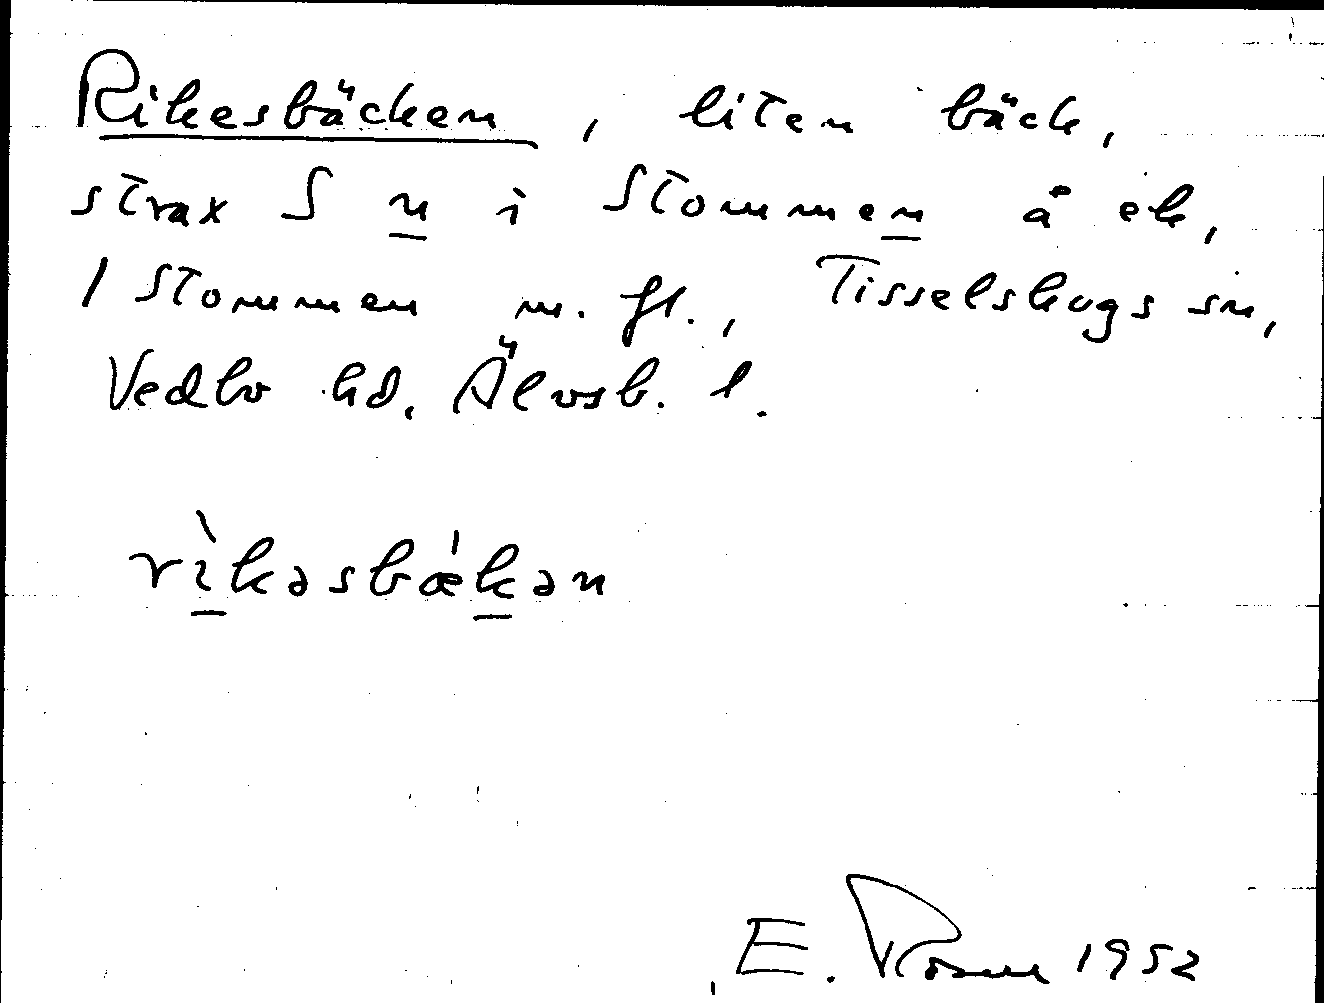 Rikesbäcken, liten bäck,
strax S n i Stommen å ek,
1 Stommen m. fl., Tisselskogs sn,
Vedbo hd. Älvsb. l.
rìkəsbæ̀kən
E. 1952